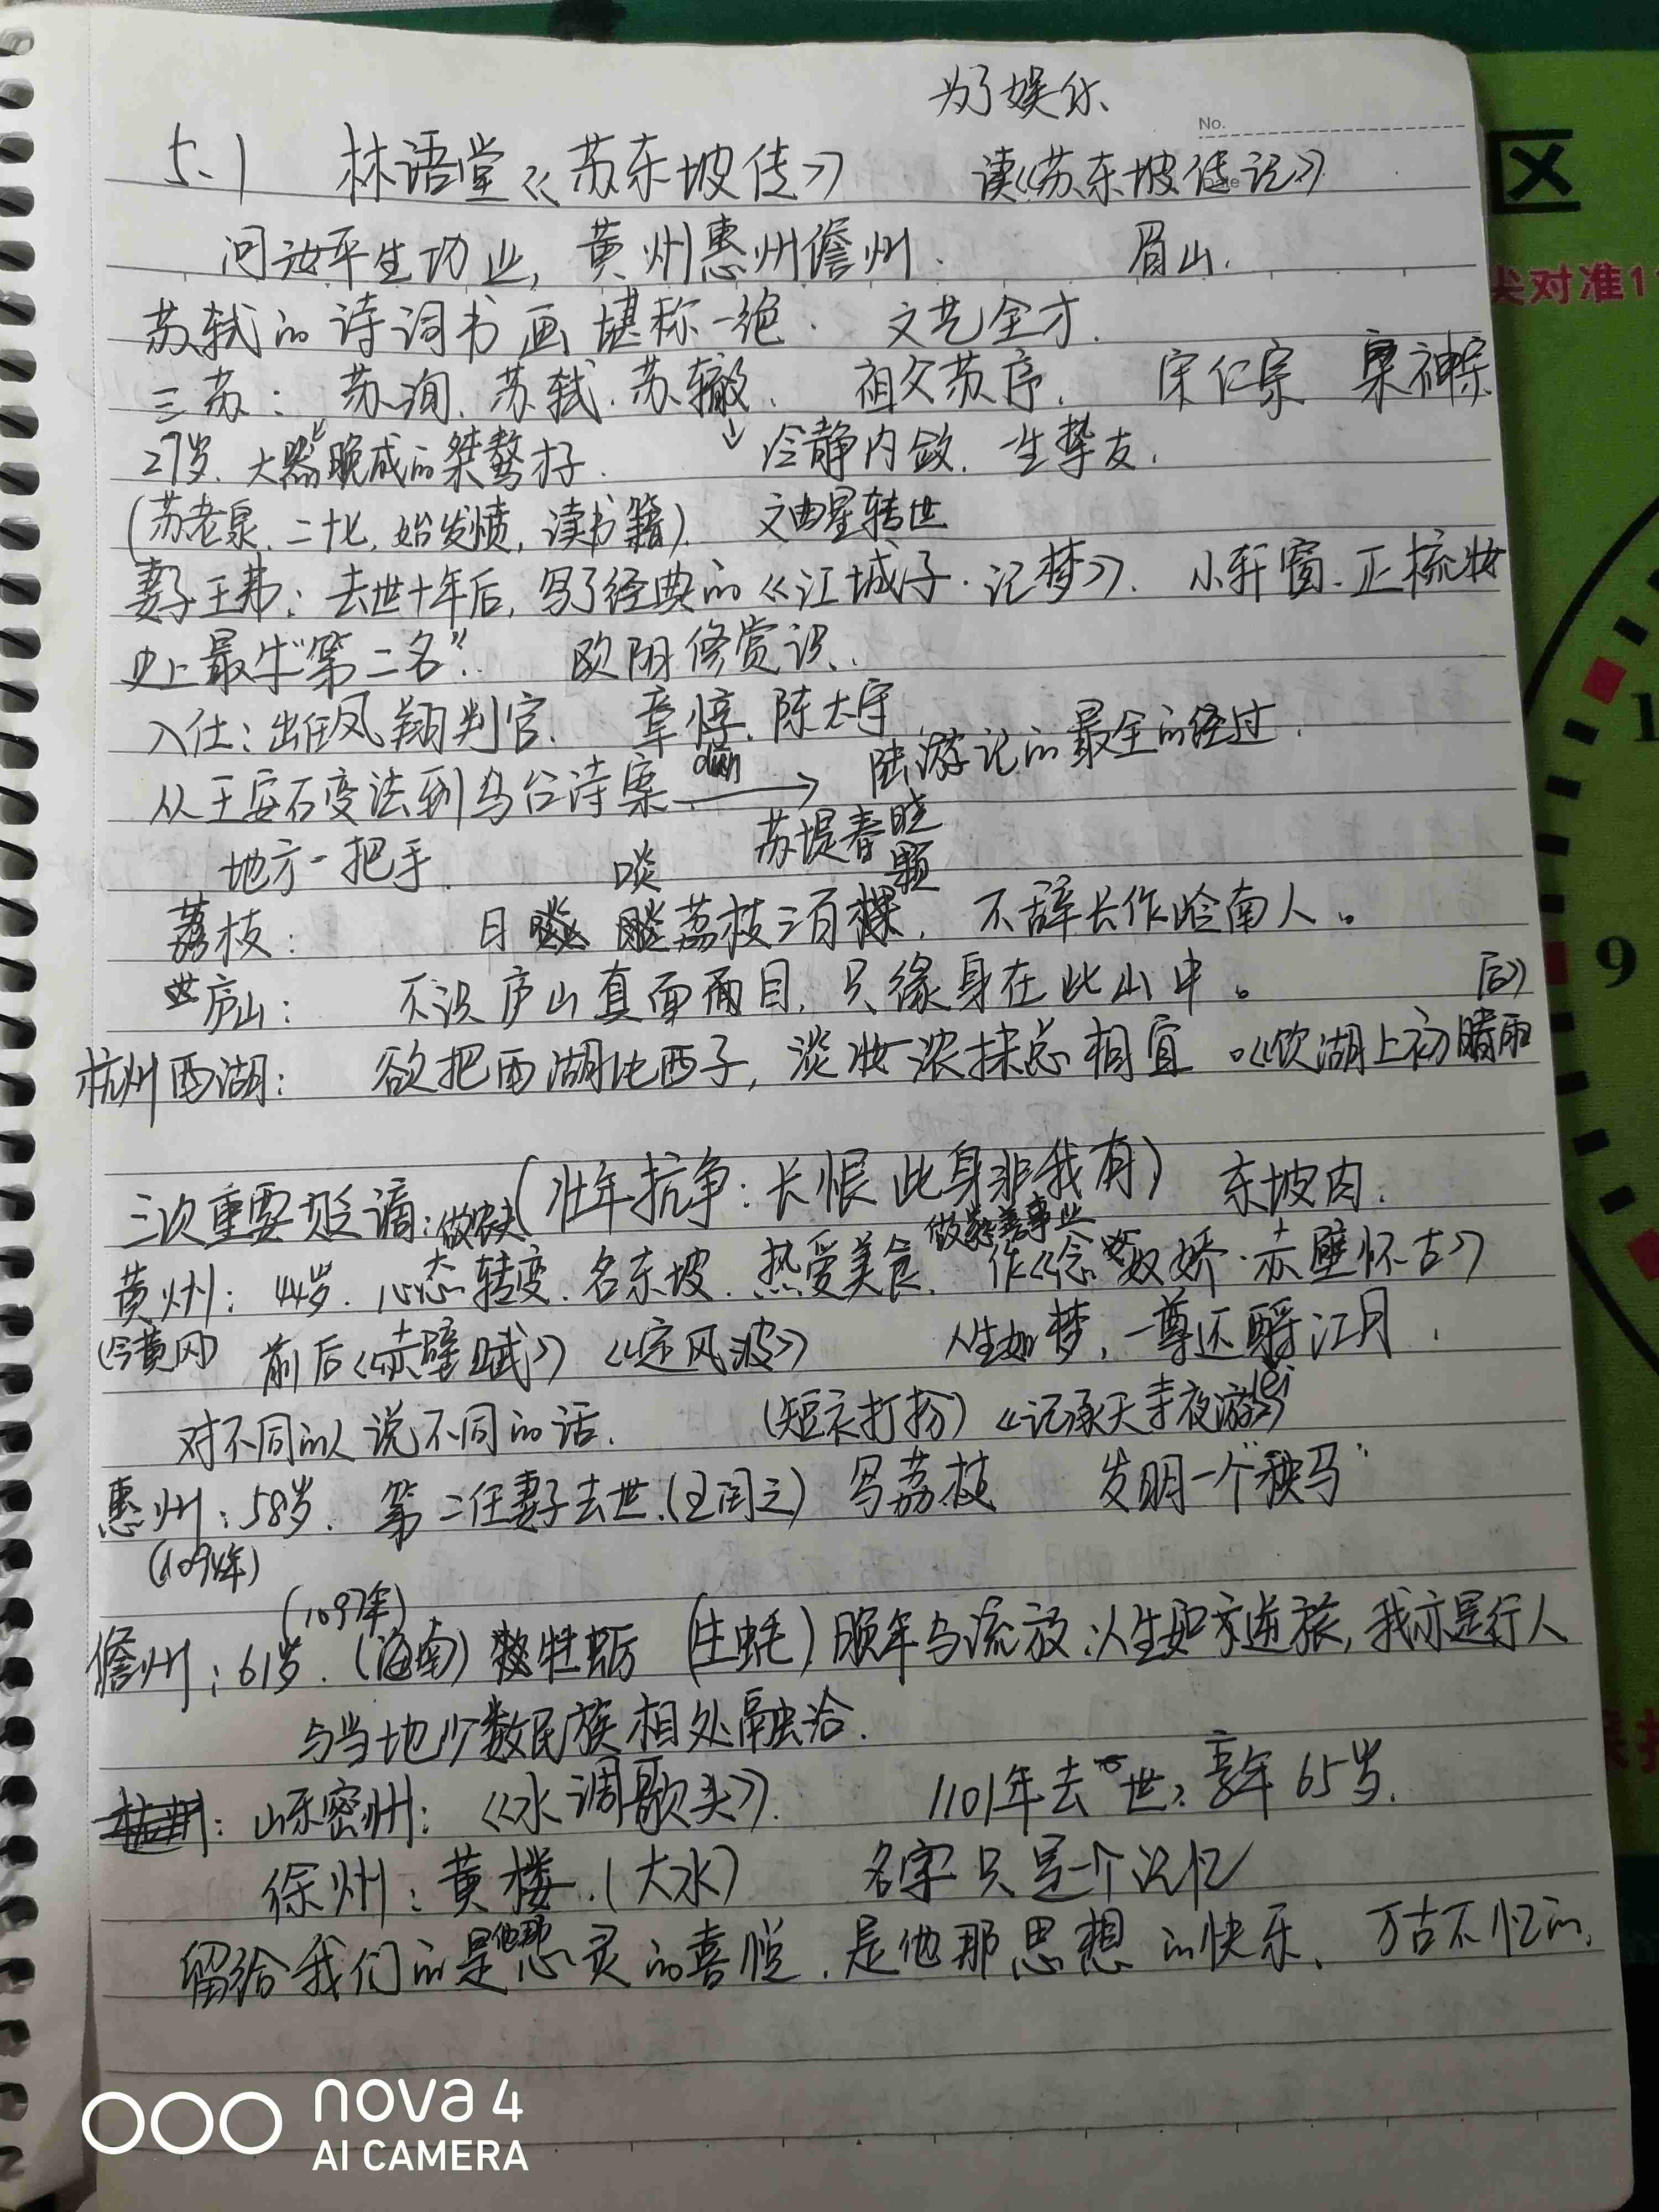 为了娱乐
No.
5.1 林语堂《苏东坡传》 读《苏东坡传记》
问汝平生功业,黄州惠州儋州. 眉山.
苏轼的诗词书画堪称一绝. 文艺全才.
三苏:苏洵.苏轼.苏辙. 祖父苏序. 宋仁宗 宋神宗
27岁.大器晚成的桀骜才子. 冷静内敛.一生挚友.
(苏老泉.二十七,始发愤,读书籍). 文曲星转世
妻子王弗:去世十年后,写了经典的《江城子·记梦》. 小轩窗.正梳妆
史上最牛“第二名”. 欧阳修赏识.
入仕:出任凤翔判官. 章惇.陈太守
dūn
从王安石变法到乌台诗案 → 陆游记的最全的经过.
地方一把手. 啖 苏堤春晓
颗
荔枝: 日啖荔枝三百颗,不辞长作岭南人。
庐山: 不识庐山真面目,只缘身在此山中。
后》
杭州西湖: 欲把西湖比西子,淡妆浓抹总相宜。《饮湖上初晴雨
三次重要贬谪:做农夫(壮年抗争:长恨此身非我有) 东坡肉.
做慈善事业
黄州:44岁.心态转变.名东坡.热爱美食.作《念奴娇·赤壁怀古》
(今黄冈) 前后《赤壁赋》《定风波》 人生如梦,一尊还酹江月.
lèi
对不同的人说不同的话. (短衣打扮)《记承天寺夜游》
惠州:58岁.第二任妻子去世.(王闰之) 写荔枝 发明一个“秧马”
(1094年)
(1097年)
儋州:61岁.(海南) 牡蛎 (生蚝) 晚年与流放:人生如寄逆旅,我亦是行人
与当地少数民族相处融洽.
杭州:山东密州:《水调歌头》. 1101年去世,享年65岁.
徐州:黄楼.(大水) 名字只是一个记忆
留给我们的是他那心灵的喜悦.是他那思想的快乐、万古不忆的.
nova 4
AI CAMERA
区
尖对准1
1
9